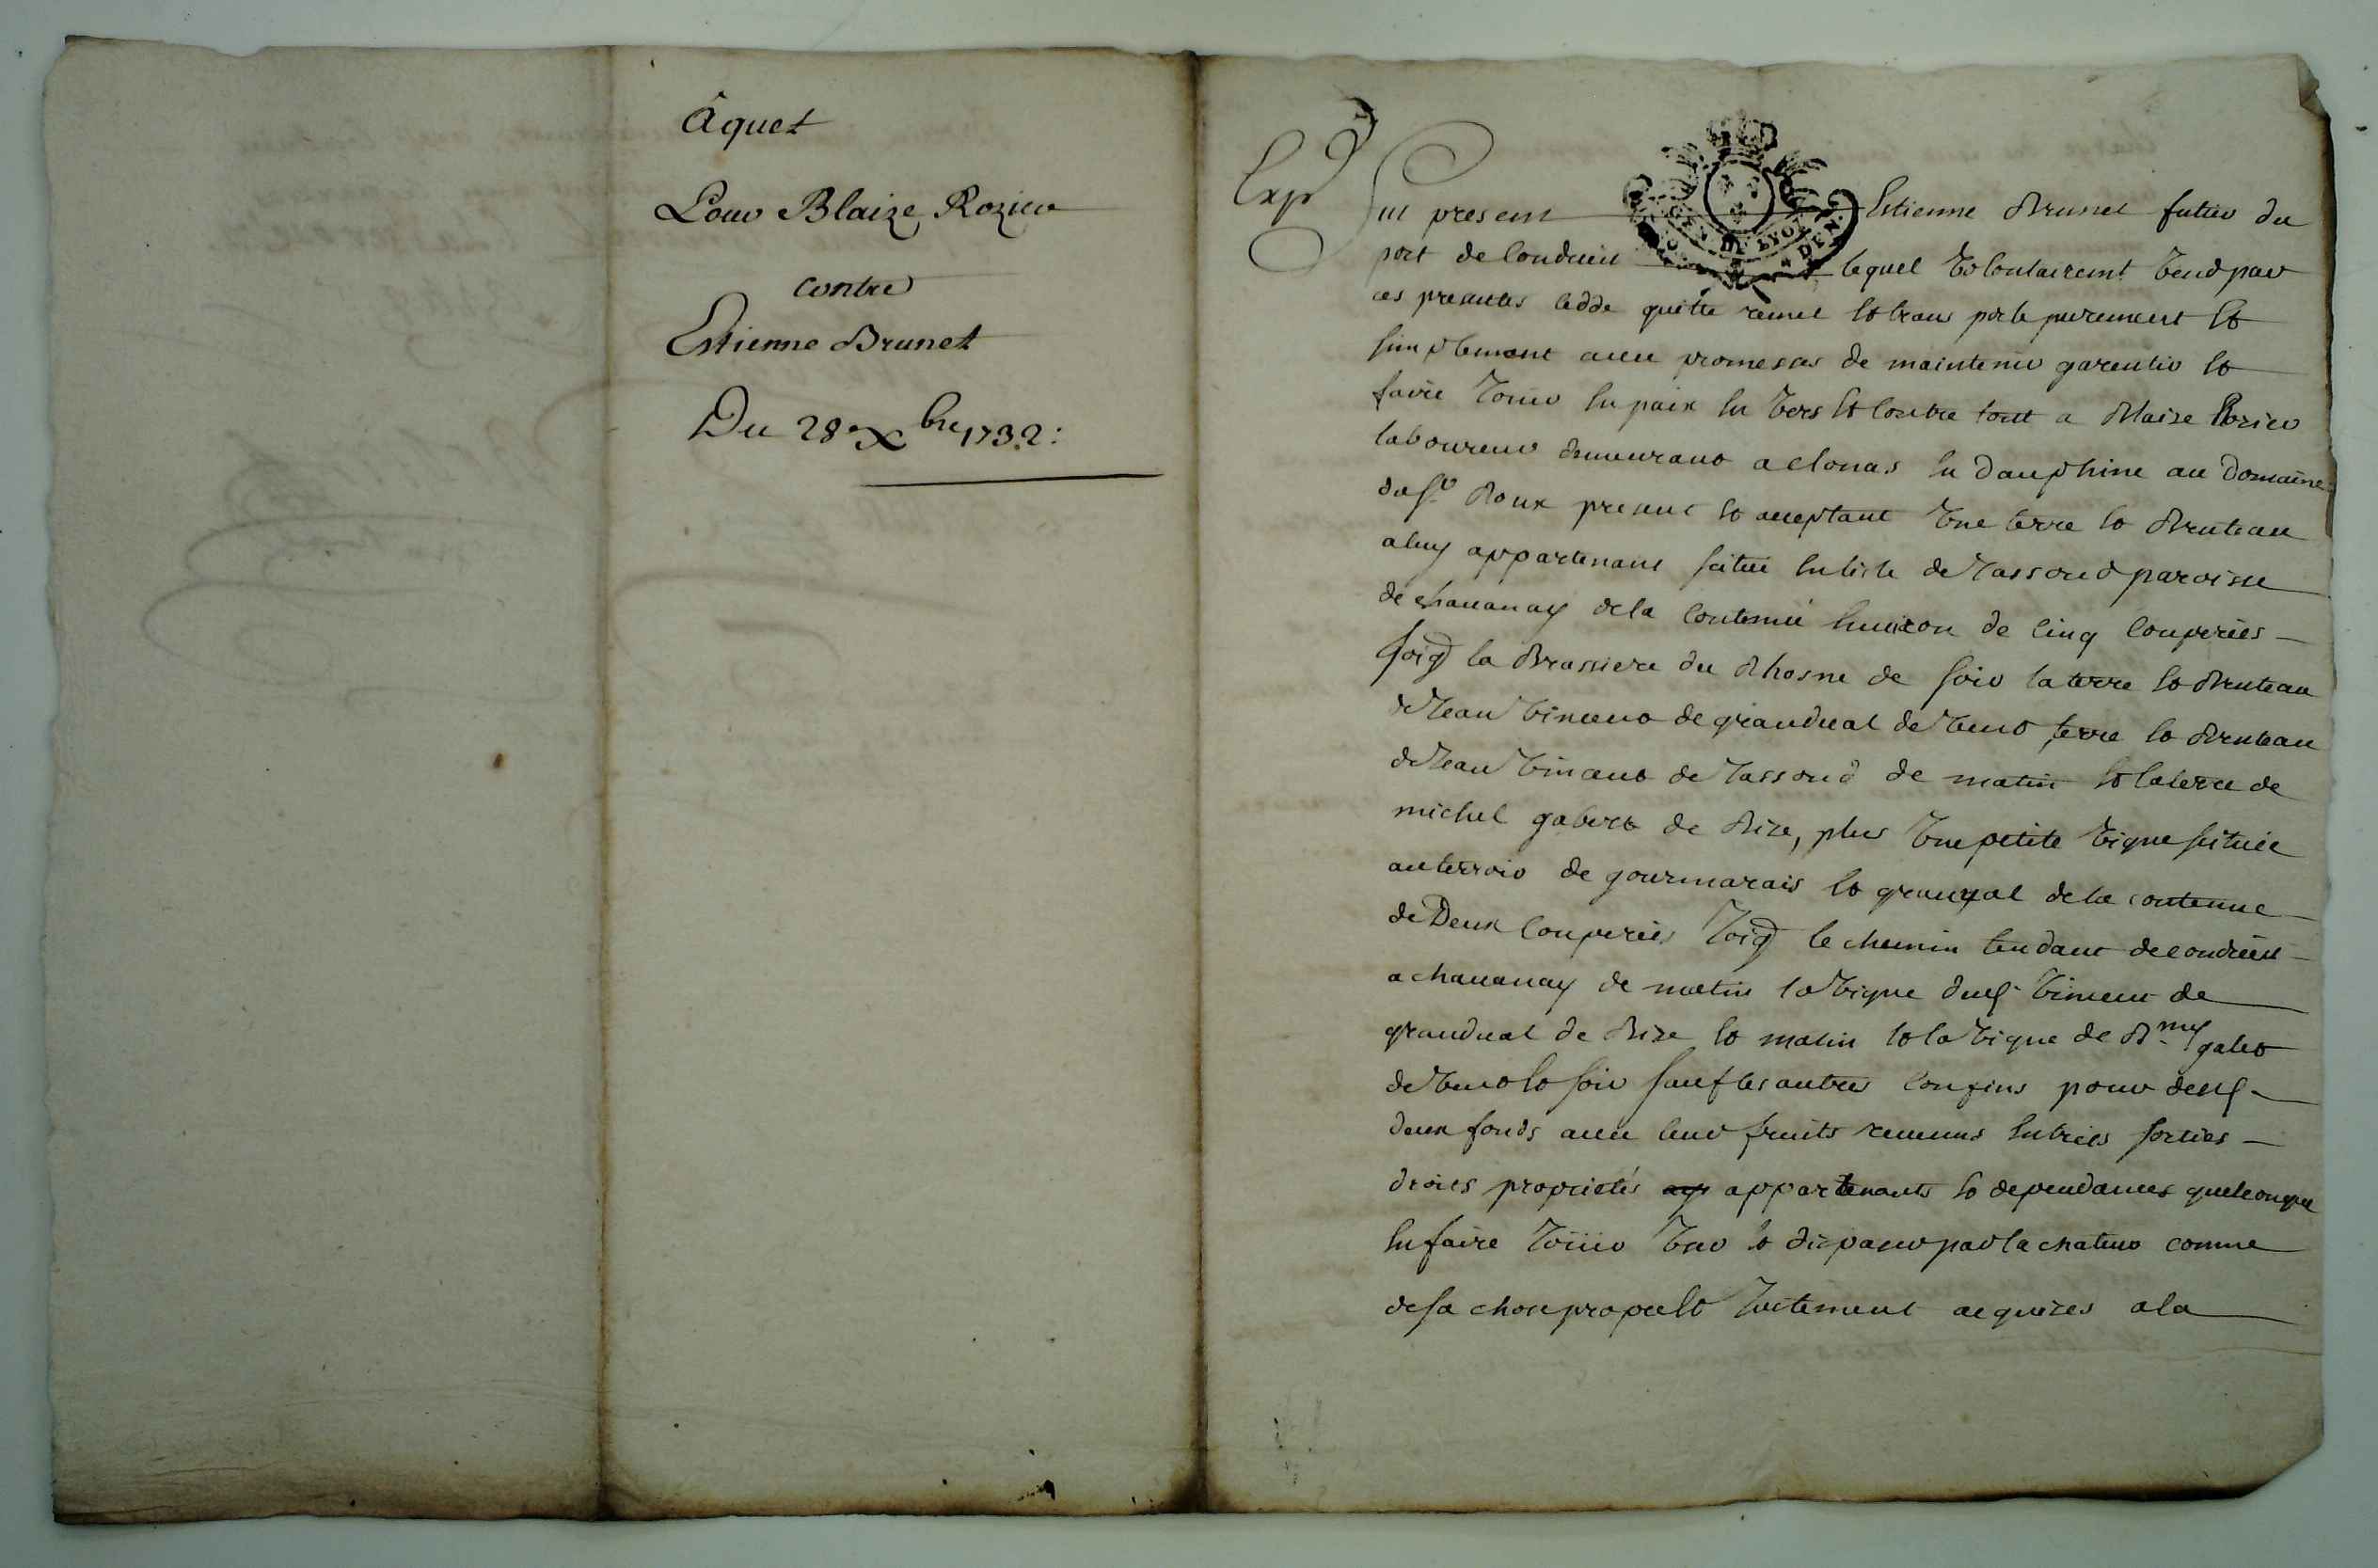 Aquet
Pour Blaize Rozier
contre
Estienne Brunet
Du 28e Xbre 1732:
Exp
Fut present Estienne Brunet futier du
port de Condrieu lequel volontairemt vend par
ces presentes cedde quitte remet et transporte purement et
simplement avec promesses de maintenir garentir et
faire jouir en paix en vers et contre tout a Blaize Rozier
laboureur demeurant a Clonas en dauphine au domaine
du sr Roux present et acceptant une terre et Bruteau
a luy appartenant scitue en liste de Jassoud paroisse
de chavanay de la contenue environ de cinq couperées
joigt la Brassiere du Rhosne de soir la terre et Bruteau
de Jean vincent de grandval de vent terre et Bruteau
de Jean vincent de Jassoud de matin et la terre de
michel gabert de Bize, plus une petite vigne scituée
au terroir de gourmarais et granval de la contenue
de Deux couperées Joigt le chemin tendant de condrieu
a chavanay de matin la vigne dud vincent de
grandval de Bize et matin et la vigne de Bmy galet
de vent et soir sauf les autres confins pour desd
deux fonds avec leur fruits revenus entrées sorties
droits proprietés appartenants et dependances quelconque
en faire jouir user et disposer par lachateur comme
de sa chose propre et justement acquises a la
GEN DE LYON